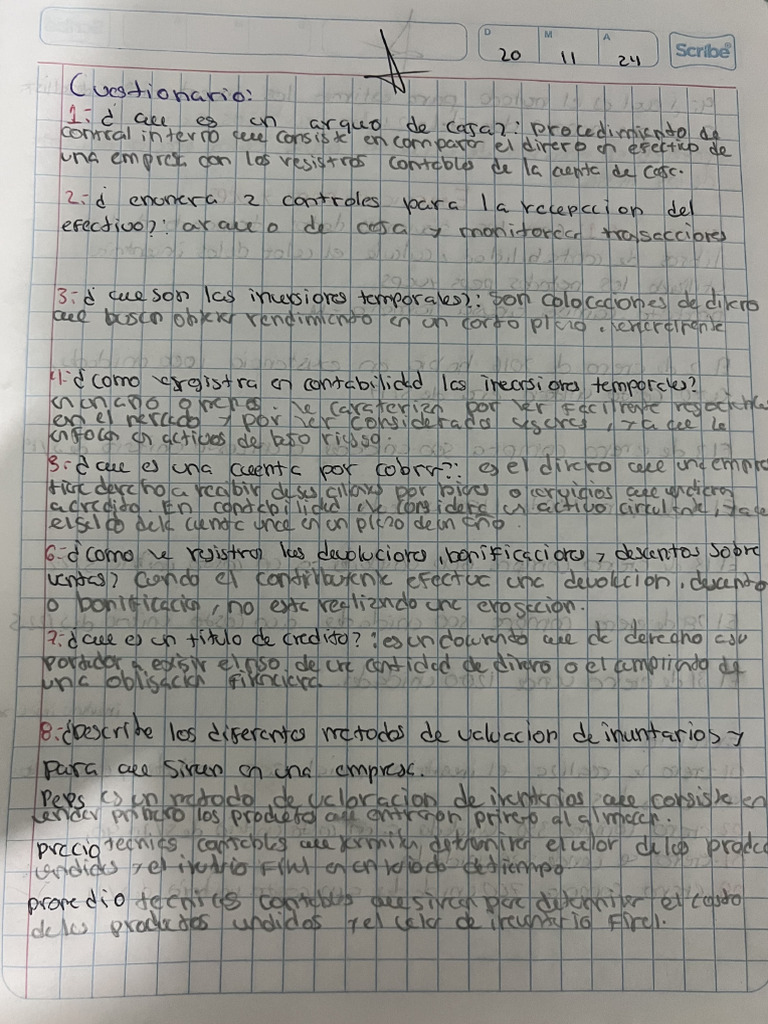 D 20 M 11 A 24 Scribe
Cuestionario:
1:¿ que es un arqueo de caja?: procedimiento de
control interno que consiste en comparar el dinero en efectivo de
una empresa con los registros contables de la cuenta de caja.
2:¿ enuncia 2 controles para la recepccion del
efectivo?: arqueo de caja y monitorear trasacciones
3:¿ que son las inversiones temporales?: son colocaciones de dinero
que buscan obtener rendimiento en un corto plazo. generalmente
4:¿como registra en contabilidad las inversiones temporales?
en un año o menos. se caraterizan por ser facilmente negociables
en el mercado y por ser considerados seguros, ya que se
enfocan en activos de bajo riesgo.
5:¿que es una cuenta por cobrar?: es el dinero que una empresa
tiene derecho a recibir de sus clientes por bienes o servicios que vendieron
a credito. En contabilidad se considera un activo circulante, ya que
el saldo de la cuenta vence en un plazo de un año.
6:¿como se registran las devoluciones, bonificaciones y descuentos sobre
ventas? Cuando el contribuyente efectue una devolucion, descuento
o bonificacion, no esta realizando una erogacion.
7:¿que es un titulo de credito?: es un documento que da derecho a su
portador a exigir el pago de una cantidad de dinero o el cumplimiento de
una obligacion financiera.
8:¿Describe los diferentes metodos de valuacion de inventarios y
para que sirven en una empresa.
Peps es un metodo de valoracion de inventarios que consiste en
vender primero los productos que entraron primero al almacen.
precio tecnicas contables que permiten determinar el valor de los productos
vendidos y el inventario final en un periodo de tiempo
promedio tecnicas contables que sirven para determinar el costo
de los productos vendidos y el valor de inventario final.